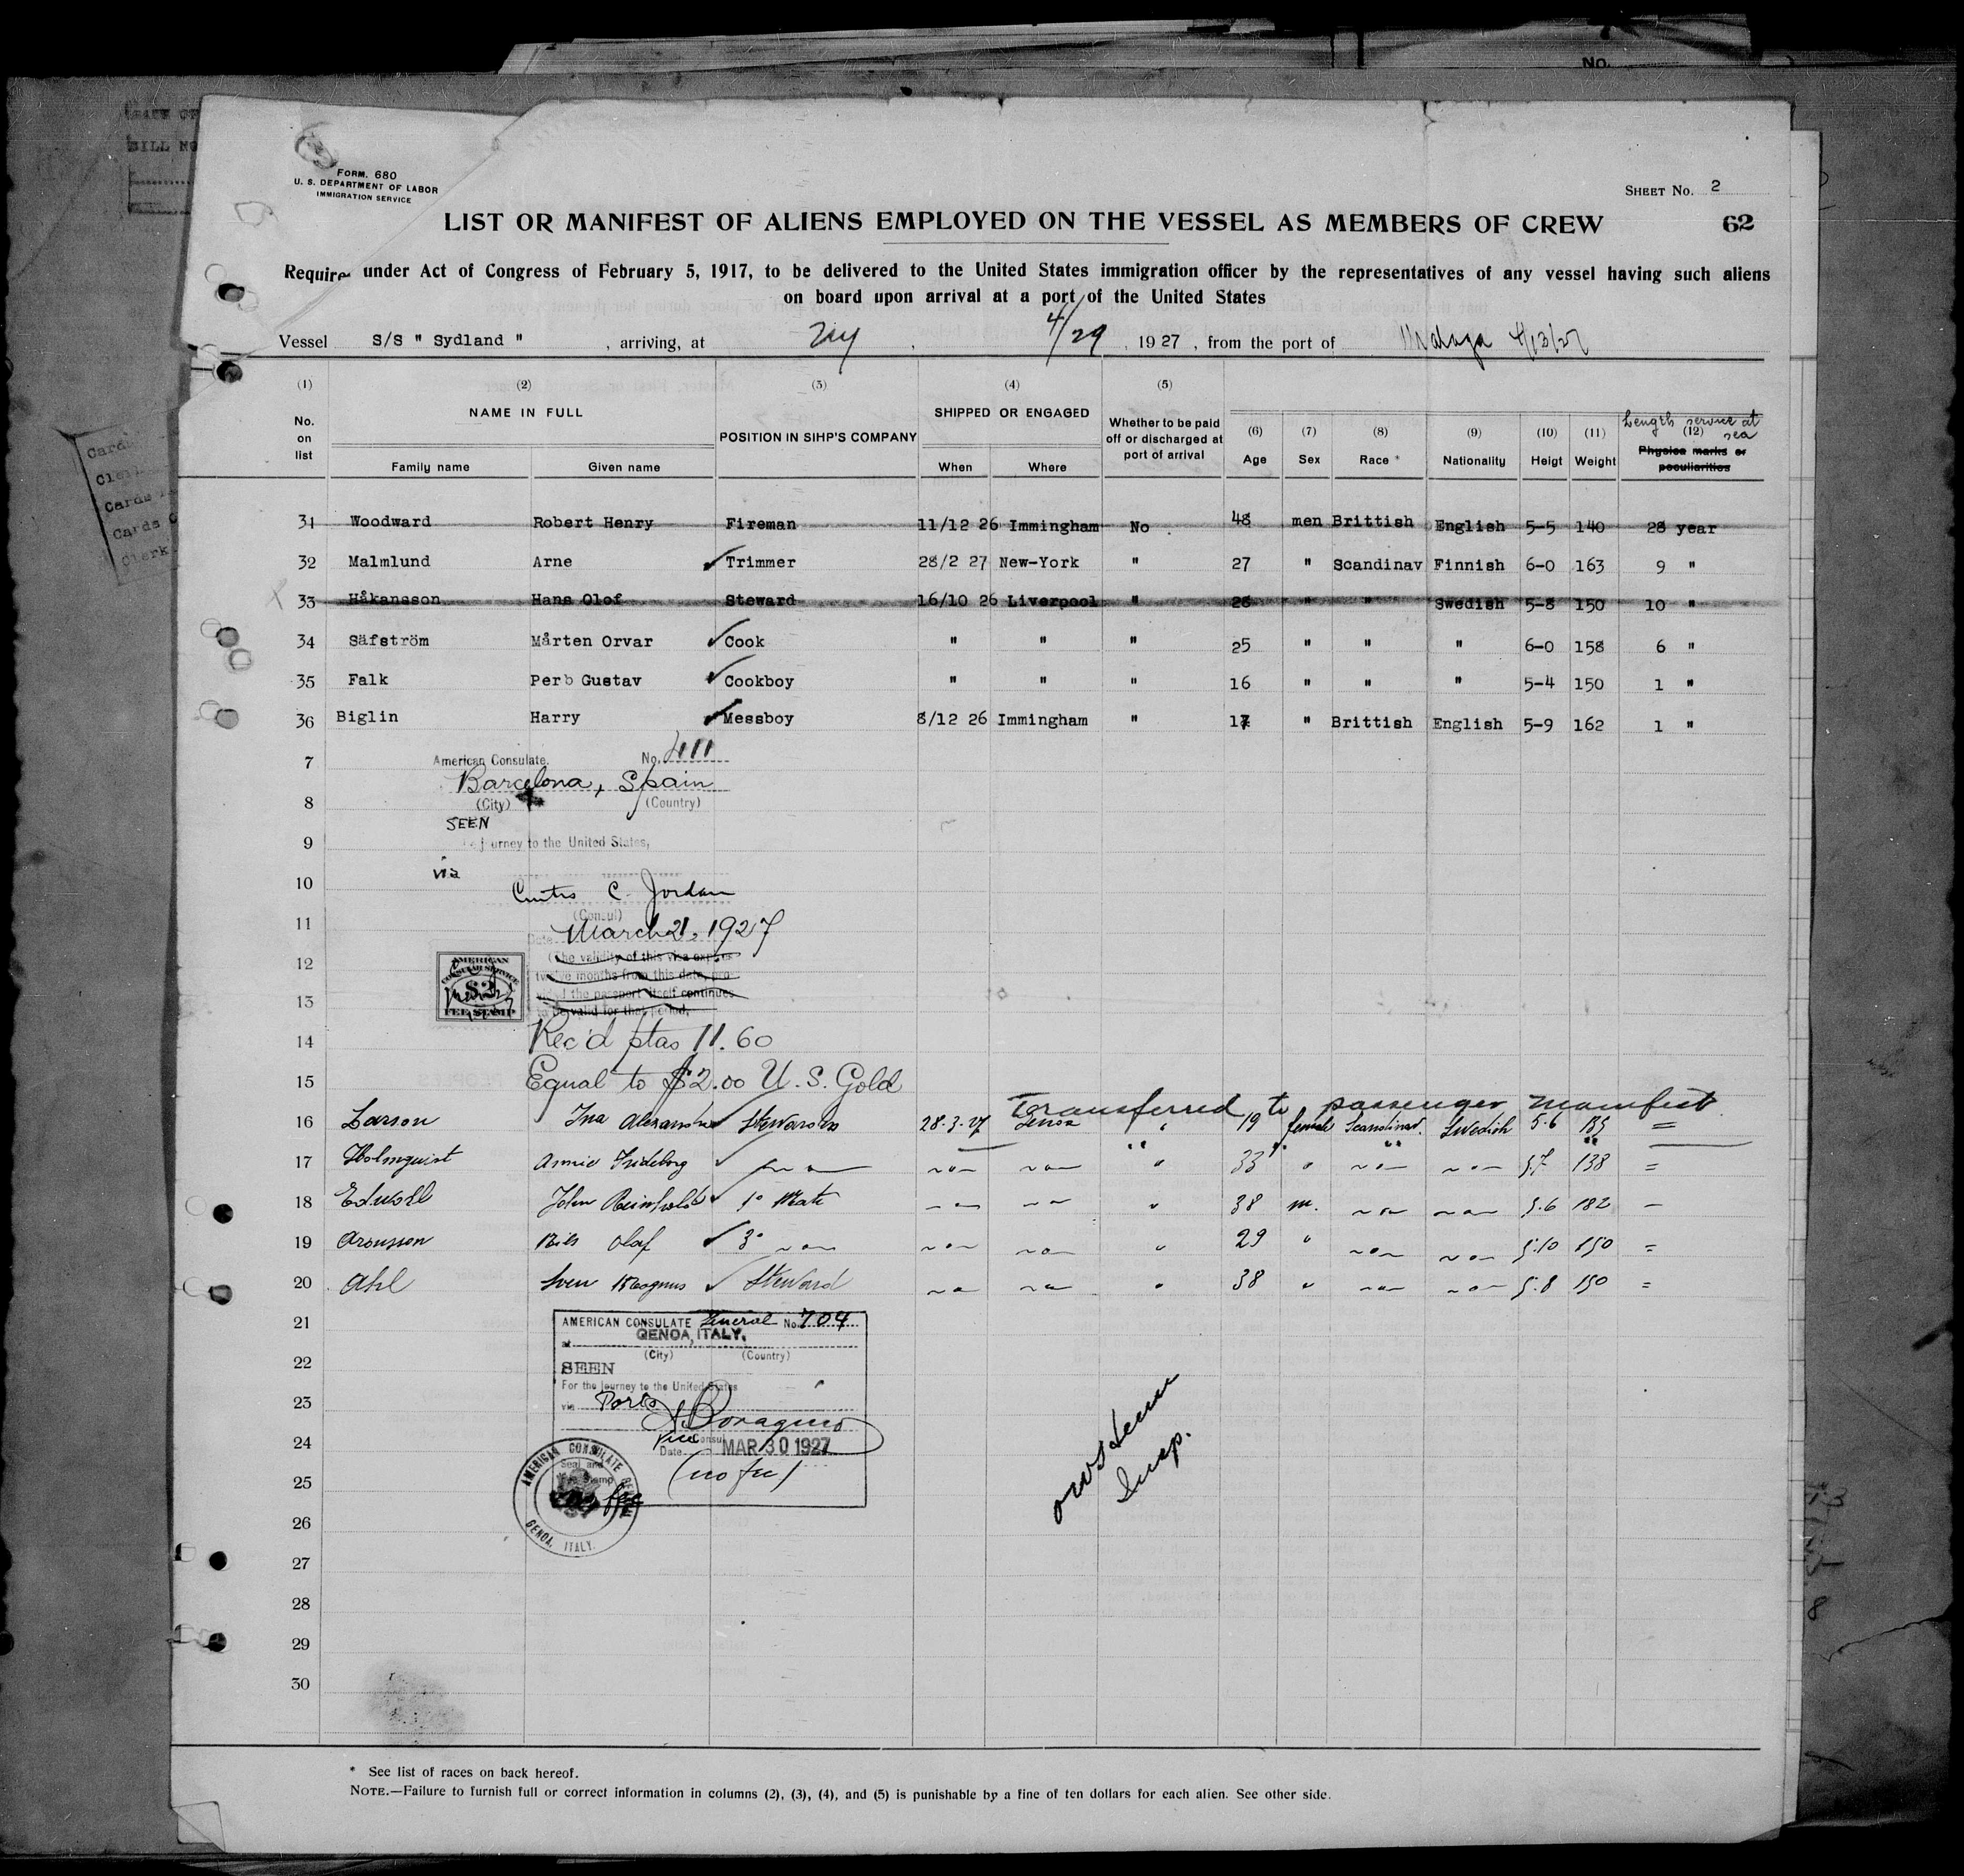 No.
FORM. 680
U. S. DEPARTMENT OF LABOR
IMMIGRATION SERVICE
SHEET No. 2
LIST OR MANIFEST OF ALIENS EMPLOYED ON THE VESSEL AS MEMBERS OF CREW 62
Require under Act of Congress of February 5, 1917, to be delivered to the United States immigration officer by the representatives of any vessel having such aliens
on board upon arrival at a port of the United States
Vessel S/S " Sydland " , arriving, at NY , 4/29 , 1927 , from the port of Malaga 4/13/27
(1) (2) (3) (4) (5) (6) (7) (8) (9) (10) (11) (12)
No. on list NAME IN FULL POSITION IN SIHP'S COMPANY SHIPPED OR ENGAGED Whether to be paid off or discharged at port of arrival Age Sex Race * Nationality Heigt Weight Length service at sea Physica marks or peculiarities
Family name Given name When Where
31 Woodward Robert Henry Fireman 11/12 26 Immingham No 48 men Brittish English 5-5 140 28 year
32 Malmlund Arne ✓ Trimmer 28/2 27 New-York " 27 " Scandinav Finnish 6-0 163 9 "
33 Håkansson Hans Olof Steward 16/10 26 Liverpool " 28 " " Swedish 5-8 150 10 "
34 Säfström Mårten Orvar ✓ Cook " " " 25 " " " 6-0 158 6 "
35 Falk Perb Gustav ✓ Cookboy " " " 16 " " " 5-4 150 1 "
36 Biglin Harry ✓ Messboy 8/12 26 Immingham " 17 " Brittish English 5-9 162 1 "
7 American Consulate. No. 411
Barcelona, Spain
8 (City) (Country)
SEEN
9 journey to the United States,
via
10 Curtis C. Jordan
(Consul)
11 Date March 21, 1927
12 (The validity of this visa expires
twelve months from this date, pro-
13 vided the passport itself continues
to be valid for that period.
AMERICAN
CONSULAR SERVICE
$2
FEE STAMP
14 Rec'd ptas 11.60
15 Equal to $2.00 U.S. Gold
Transferred to passenger manifest
16 Larson Ina Alexandra ✓ Stewardess 28-3-27 Genoa " 19 female Scandinav. Swedish 5-6 135 =
17 Holmquist Annie Frideborg ✓ " " " " 33 " " " 5.7 138 =
18 Edwoll John Reinhold ✓ 1° Mate " " " 38 m. " " 5.6 182 -
19 Aronsson Nils Olaf ✓ 3° " " " " 29 " " " 5.10 150 =
20 Ahl Sven Magnus ✓ Steward " " " 38 " " " 5.8 150 =
21 AMERICAN CONSULATE General No. 704
at GENOA, ITALY.
22 (City) (Country)
SEEN
For the journey to the United States
23 via Ports
Vice Consul
24 Date MAR 30 1927
Seal and
Fee Stamp
(no fee)
25 no fee
AMERICAN CONSULATE GENERAL
GENOA, ITALY.
Insp.
26
27
28
29
30
* See list of races on back hereof.
NOTE.—Failure to furnish full or correct information in columns (2), (3), (4), and (5) is punishable by a fine of ten dollars for each alien. See other side.